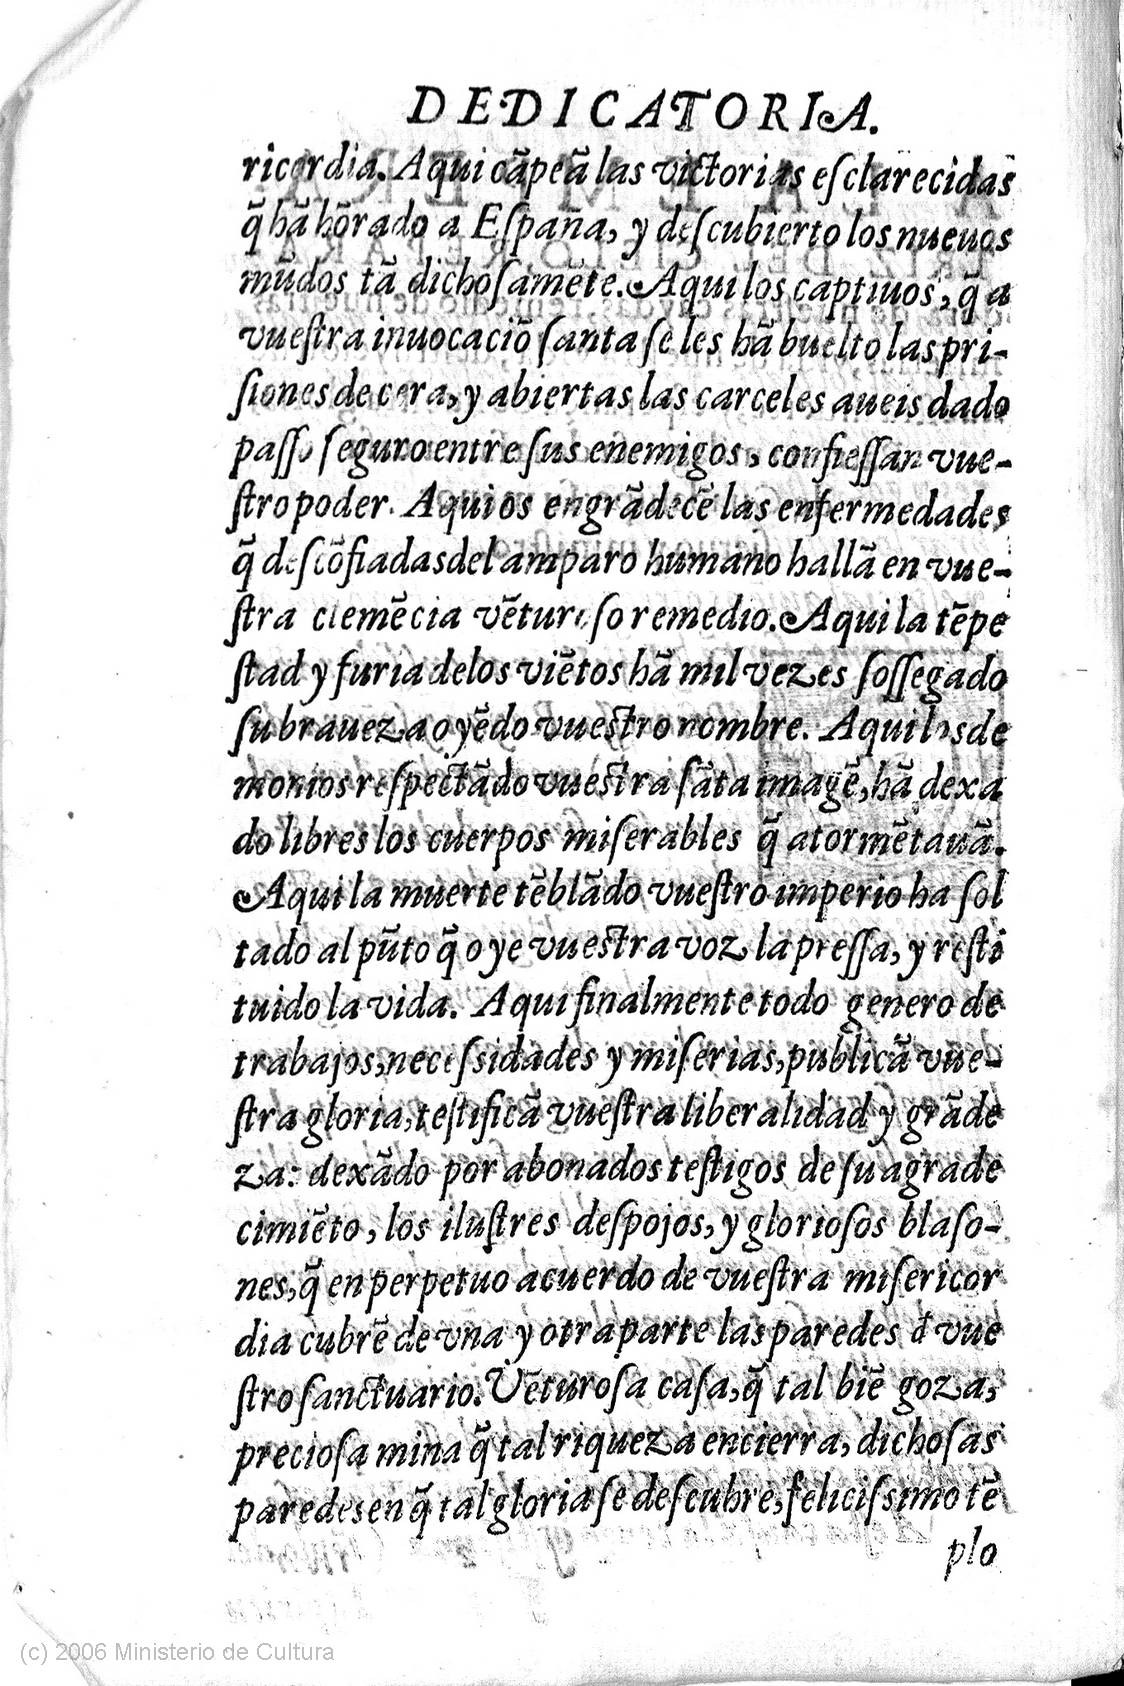 DEDICATORIA.
ricordia. Aqui cãpeã las victorias esclarecidas
q̃ hã hõrado a España, y descubierto los nueuos
mũdos tã dichosamẽte. Aqui los captiuos, q̃ a
vuestra inuocaciõ santa se les hã buelto las pri-
siones de cera, y abiertas las carceles aueis dado
passo seguro entre sus enemigos, confiessan vue-
stro poder. Aqui os engrãdecẽ las enfermedades
q̃ descõfiadas del amparo humano hallã en vue-
stra clemẽcia vẽturoso remedio. Aqui la tẽpe
stad y furia de los viẽtos hã mil vezes sossegado
su braueza oyẽdo vuestro nombre. Aqui los de
monios respectãdo vuestra sãta imagẽ, hã dexa
do libres los cuerpos miserables q̃ atormẽtauã.
Aqui la muerte tẽblãdo vuestro imperio ha sol
tado al pũto q̃ oye vuestra voz la pressa, y resti
tuido la vida. Aqui finalmente todo genero de
trabajos, necessidades y miserias, publicã vue-
stra gloria, testificã vuestra liberalidad y grãde
za: dexãdo por abonados testigos de su agrade
cimiẽto, los ilustres despojos, y gloriosos blaso-
nes, q̃ en perpetuo acuerdo de vuestra misericor
dia cubrẽ de vna y otra parte las paredes d̃ vue
stro sanctuario. Vẽturosa casa, q̃ tal biẽ goza,
preciosa mina q̃ tal riqueza encierra, dichosas
paredes en q̃ tal gloria se descubre, felicissimo tẽ
plo
(c) 2006 Ministerio de Cultura